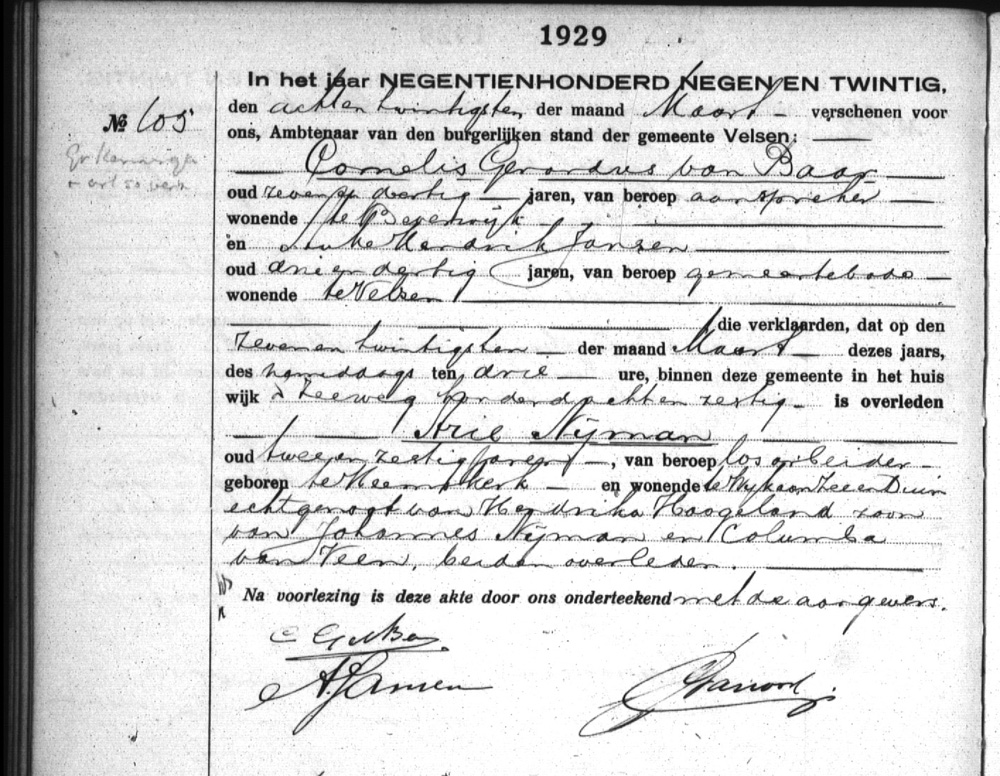 1929
In het jaar NEGENTIENHONDERD NEGEN EN TWINTIG,
den achten twintigsten der maand Maart verschenen voor
№ 105
ons, Ambtenaar van den burgerlijken stand der gemeente Velsen:
Cornelis Gerardus van Baar
oud zeven en dertig jaren, van beroep aanspreker
wonende te Beverwijk
en Hendrik Jansen
oud drie en dertig jaren, van beroep gemeentebode
wonende te Velsen
die verklaarden, dat op den
zeven en twintigsten der maand Maart dezes jaars,
des namiddags ten drie ure, binnen deze gemeente in het huis
wijk Zeeweg honderd acht en zestig is overleden
Arie Nijman
oud twee en zestig jaren, van beroep los arbeider
geboren te Heemskerk en wonende te Wijk aan Zee en Duin
echtgenoot van Hendrika Hoogeland zoon
van Johannes Nijman en Columba
van Veen, beiden overleden.
Na voorlezing is deze akte door ons onderteekend met de aangevers.
A. Jansen